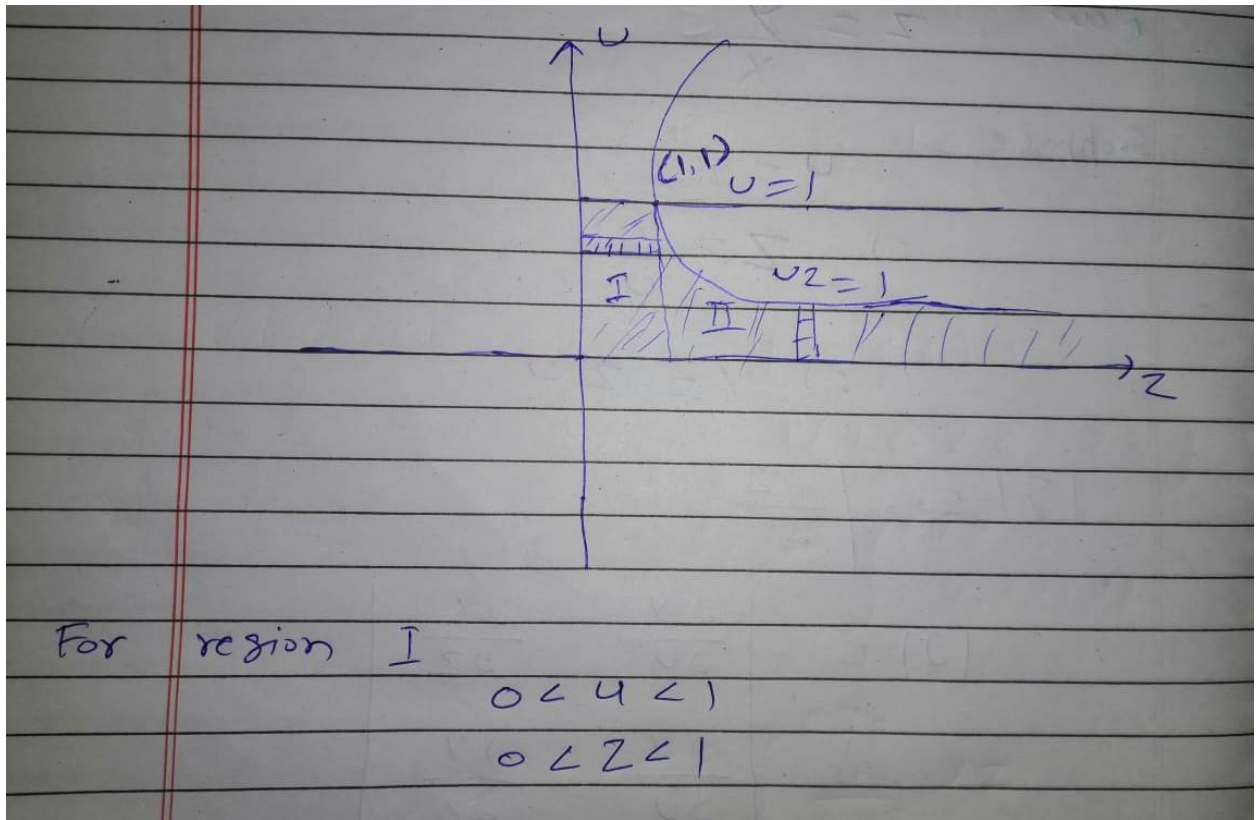 U
(1,1)
U=1
UZ=1
I
II
Z
For region I
0<u<1
0<z<1